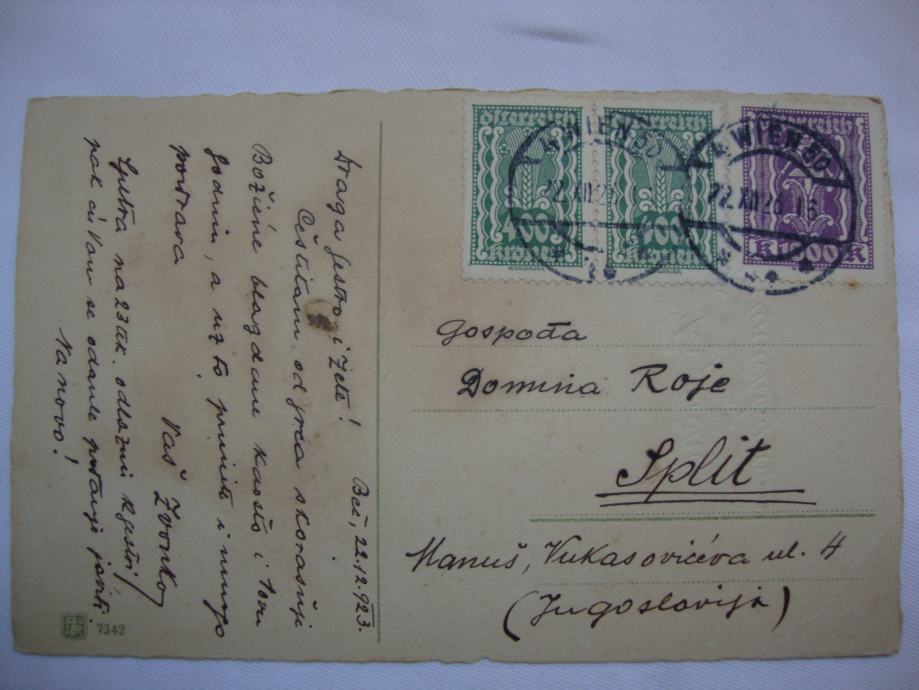 Beč, 22.12.923.
Draga sestro i zete!
Čestitam od srca skorašnje
Božićne blagdane kao što i Novu
godinu, a uz to primite i mnogo
pozdrava
Vaš Zvonko
Sjutra na 23 tek. odlazim k sestri,
pak ću Vam se odanle javiti.
Na novo!
7342
Österreich
400
Kronen
Österreich
400
Kronen
Österreich
K 1000 K
WIEN 50
22.XII.23
WIEN 50
22.XII.23 16
Gospođa
Domina Roje
Split
Manuš, Vukasovićeva ul. 4
(Jugoslavija)